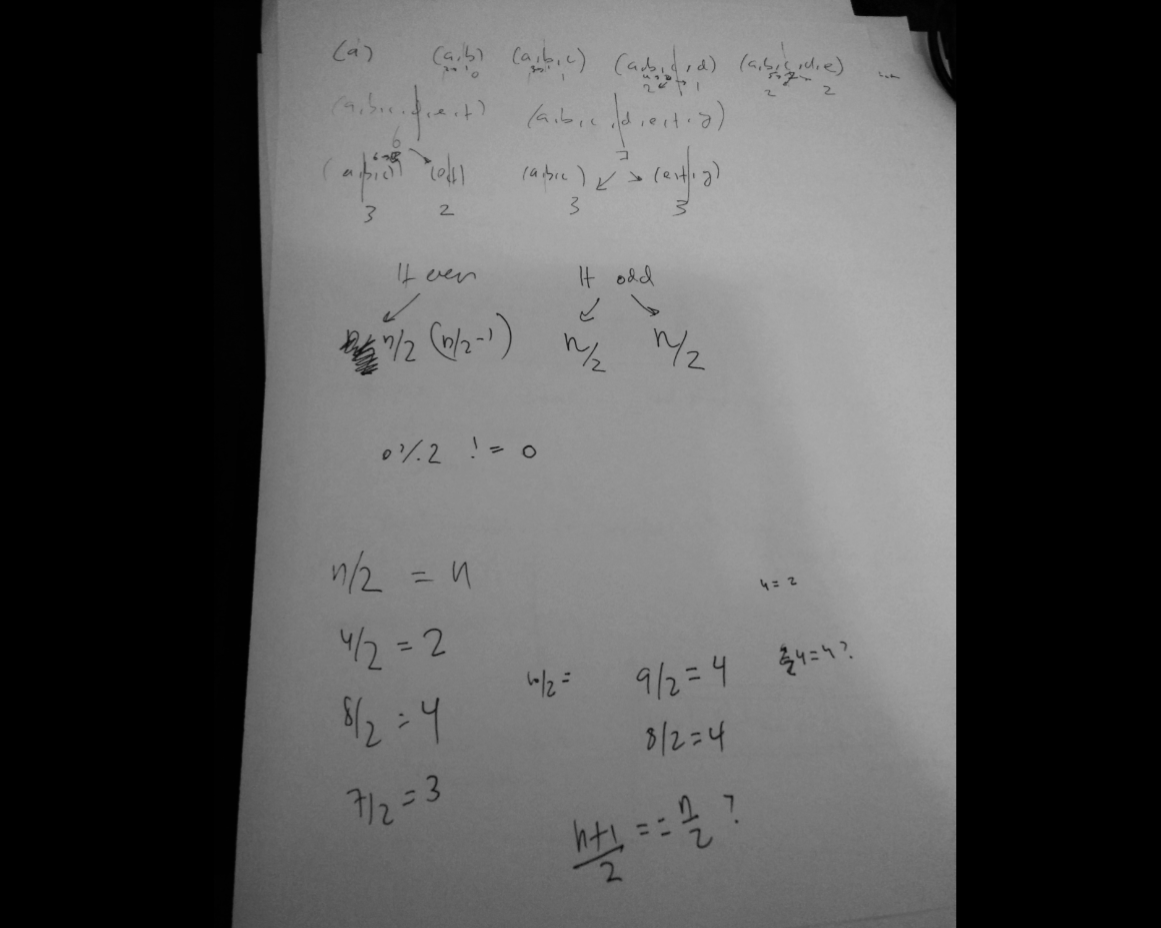 (a) (a,b) (a,b,c) (a,b,c,d) (a,b,c,d,e) ...
2 1 2 2
(a,b,c,d,e,f) (a,b,c,d,e,f,g)
6 7
(a,b,c) (e,f) (a,b,c) (e,f,g)
3 2 3 3
If even If odd
n/2 (n/2-1) n/2 n/2
0%2 != 0
n/2 = n
4/2 = 2
10/2 = 9/2=4
8/2 = 4 8/2=4
7/2=3
n+1/2 == n/2 ?